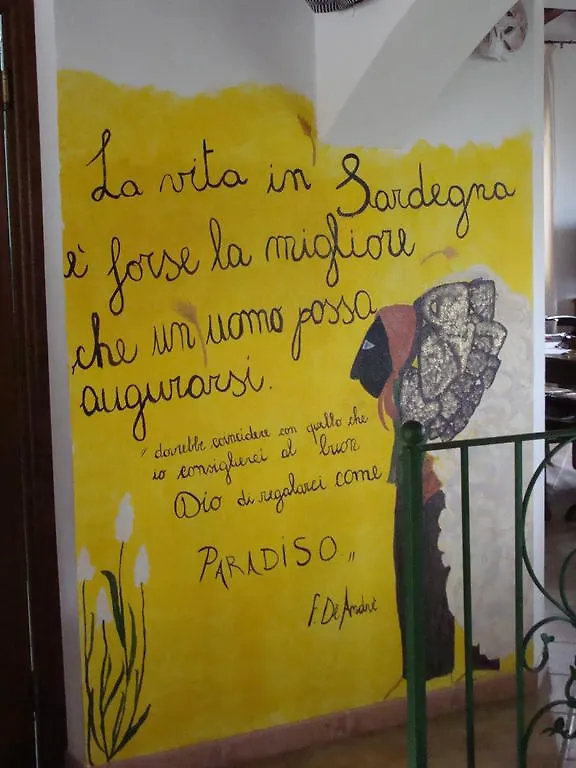 La vita in Sardegna
è forse la migliore
che un uomo possa
augurarsi.
"dovrebbe coincidere con quello che
io consiglierei al buon
Dio di regalarci come
PARADISO"
F. De Andrè